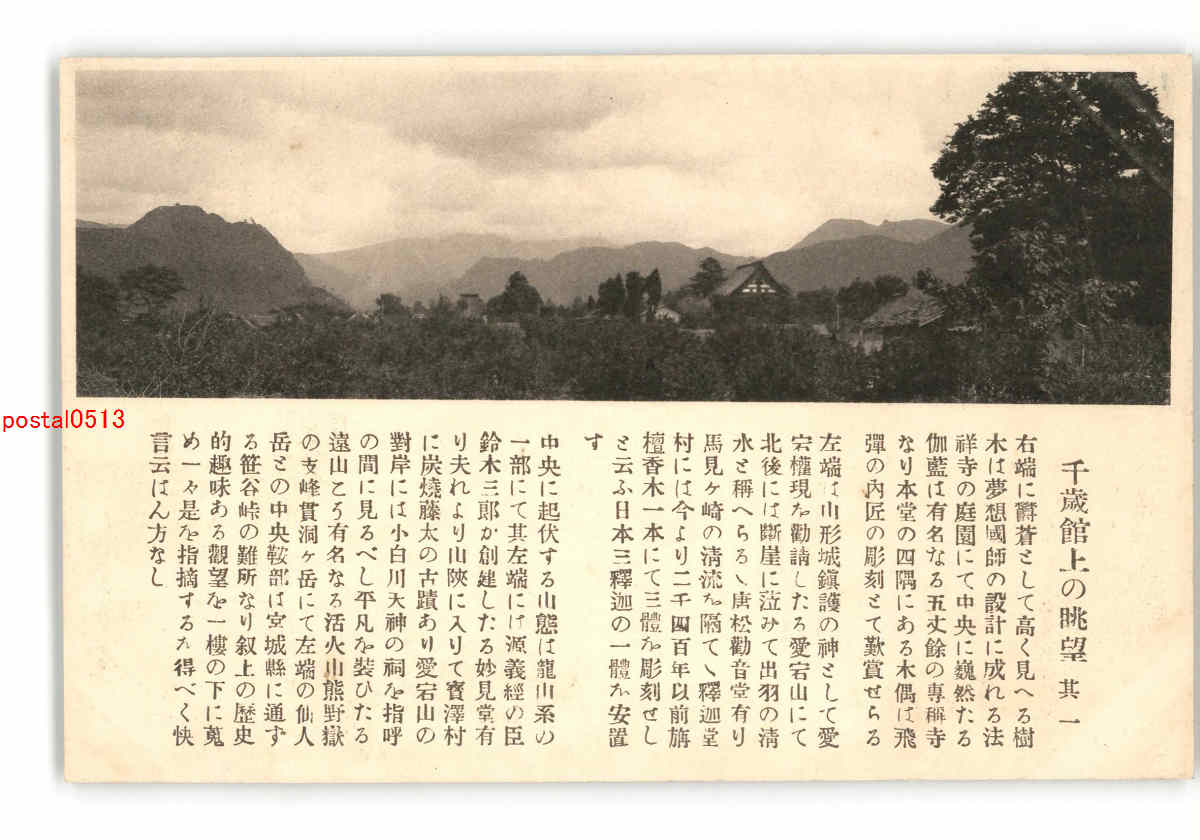 千歳館上の眺望 其一
右端に欝蒼として高く見へる樹
木は夢想國師の設計に成れる法
祥寺の庭園にて中央に巍然たる
伽藍は有名なる五丈餘の專稱寺
なり本堂の四隅にある木偶は飛
彈の內匠の彫刻とて歎賞せらる
左端は山形城鎭護の神として愛
宕權現を勸請したる愛宕山にて
北後には斷崖に涖みて出羽の淸
水と稱へらるゝ唐松觀音堂有り
馬見ヶ崎の淸流を隔てゝ釋迦堂
村には今より二千四百年以前旃
檀香木一本にて三體を彫刻せし
と云ふ日本三釋迦の一體を安置
す
中央に起伏する山態は龍山系の
一部にて其左端には源義經の臣
鈴木三郎が創建したる妙見堂有
り夫れより山陜に入りて寳澤村
に炭燒藤太の古蹟あり愛宕山の
對岸には小白川天神の祠を指呼
の間に見るべし平凡を裝ひたる
遠山こう有名なる活火山熊野嶽
の支峰貫洞ヶ岳にて左端の仙人
岳との中央鞍部は宮城縣に通ず
る笹谷峠の難所なり叙上の歷史
的趣味ある觀望を一樓の下に蒐
め一々是を指摘するを得べく快
言云はん方なし
postal0513